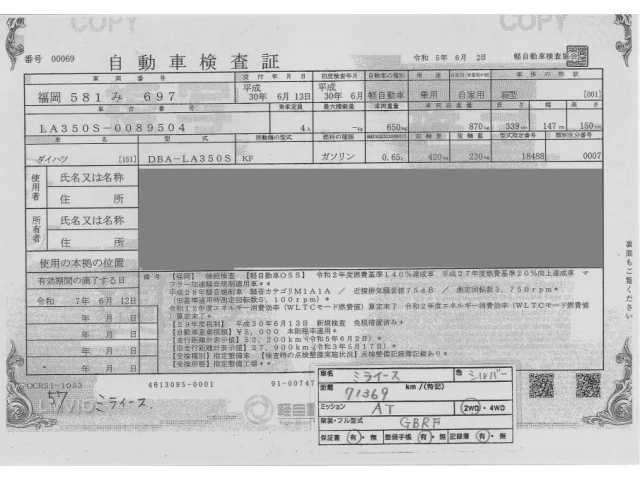 COPY
COPY
番号 00069
自動車検査証
令和 5年 6月 2日
軽自動車検査協会
車両番号
交付年月日
初度検査年月
自動車の種別
用途
自家用・事業用の別
車体の形状
福岡 581 み 697
平成 30年 6月 13日
平成 30年 6月
軽自動車
乗用
自家用
箱型
[001]
車台番号
乗車定員
最大積載量
車両重量
車両総重量
長さ
幅
高さ
LA350S-0089504
4人
-kg
650kg
870kg
339cm
147cm
150cm
車名
型式
原動機の型式
燃料の種類
型式指定番号
類別区分番号
ダイハツ
[151]
DBA-LA350S
KF
ガソリン
0.65L
420kg
230kg
18488
0007
使用者
氏名又は名称
住所
所有者
氏名又は名称
住所
使用の本拠の位置
有効期間の満了する日
令和 7年 6月 12日
年 月 日
年 月 日
年 月 日
年 月 日
備考
【福岡】 継続検査 【軽自動車OSS】 令和2年度燃費基準140%達成車 平成27年度燃費基準20%向上達成車 マ
フラー加速騒音規制適用車**
平成28年騒音規制車 騒音カテゴリM1A1A / 近接排気騒音値75dB / 測定回転数3,750rpm*
(旧基準適用時測定回転数5,100rpm)*
令和12年度エネルギー消費効率(WLTCモード燃費値)算定未了 令和2年度エネルギー消費効率(WLTCモード燃費値)
算定未了*
【29年度税制】 平成30年6月13日 新規検査 免税措置済み*
【自動車重量税額】¥5,000 本則税率適用*
【走行距離計表示値】52,200km(令和5年6月2日)
【旧走行距離計表示値】27,900km(令和3年5月17日)*
【受検種別】指定整備車 【検査時の点検整備実施状況】点検整備記録簿記載あり*
【受検形態】指定整備工場**
裏面もご覧ください
OCR51-1053
4613085-0001
91-00747
57 ミライース
車名 ミライース
色 シルバー
距離 71369 km/(特記)
ミッション AT
2WD・4WD
架装・フル型式 GBRF
保証書 有・無 整備手帳 有・無 記録簿 有・無